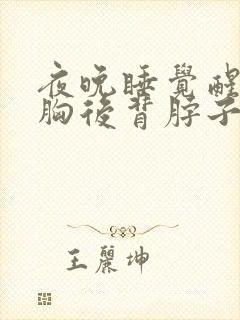 夜晚睡覺醒
胸後背脖子
王麗坤